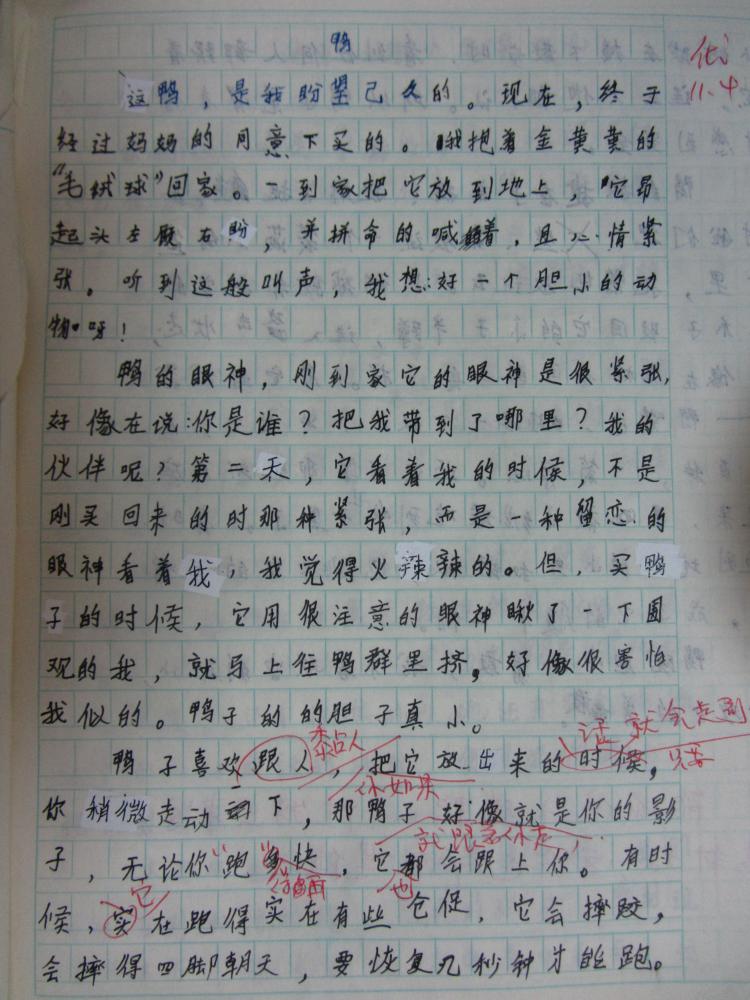 鸭
优
11.4
这鸭，是我盼望已久的。现在，终于
经过妈妈的同意下买的。我抱着金黄黄的
“毛绒球”回家。一到家把它放到地上，它昂
起头左顾右盼，并拼命的喊着，且心情紧
张。听到这般叫声，我想：好一个胆小的动
物呀！
鸭的眼神，刚到家它的眼神是很紧张，
好像在说：你是谁？把我带到了哪里？我的
伙伴呢？第二天，它看着我的时候，不是
刚买回来的时那种紧张，而是一种留恋的
眼神看着我，我觉得火辣辣的。但，买鸭
子的时候，它用很注意的眼神瞅了一下围
观的我，就马上往鸭群里挤，好像很害怕
我似的。鸭子的的胆子真小。
黏人
话就会走到
鸭子喜欢跟人，把它放出来的时候，
你如果
你稍微走动一下，那鸭子好像就是你的影
就跟着你走，
子，无论你跑多快，它都会跟上你。有时
得
也
它
候，实在跑得实在有些仓促，它会摔跤，
会摔得四脚朝天，要恢复几秒钟才能跑。